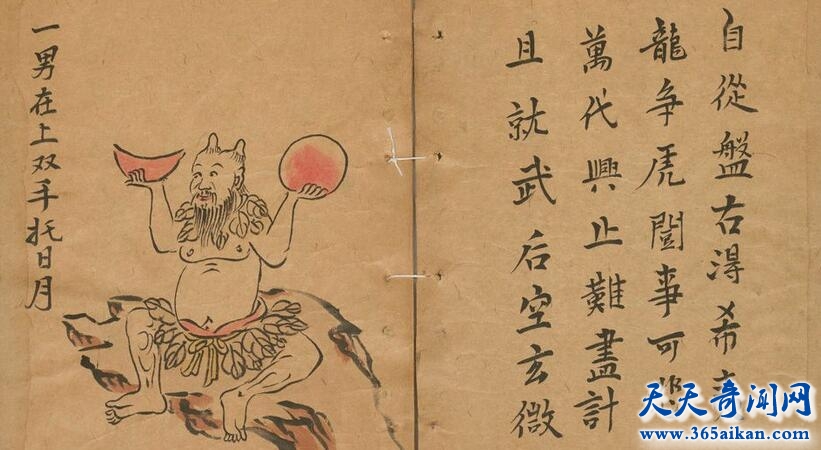 自從盤古淂希
龍争虎闘事可
萬代興止難盡計
且就武后空玄微
一男在上双手托日月
天天奇闻网
www.365aikan.com